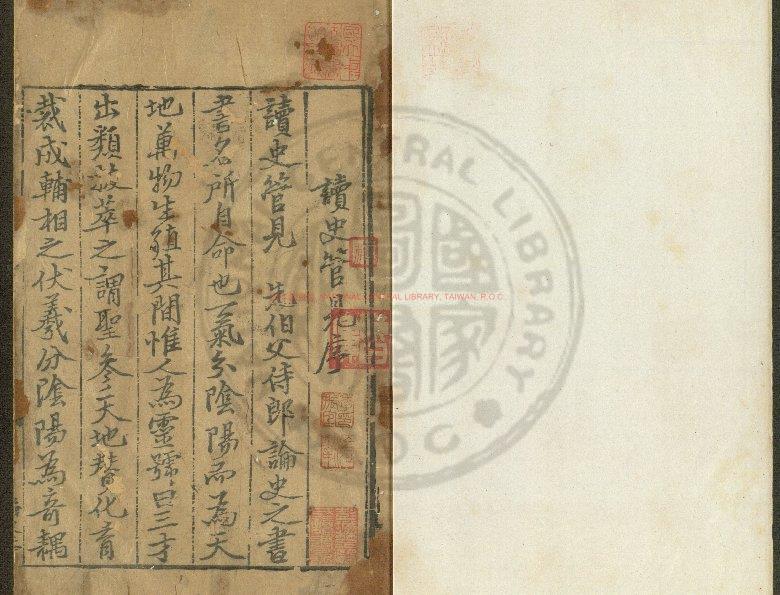 讀史管見序
讀史管見 先伯父侍郎論史之書
書名所自命也一氣分陰陽而為天
地萬物生殖其間惟人為靈號曰三才
出類拔萃之謂聖參天地贊化育
裁成輔相之伏羲分陰陽為奇耦
NATIONAL CENTRAL LIBRARY, TAIWAN, R.O.C.
CENTRAL LIBRARY
國家圖